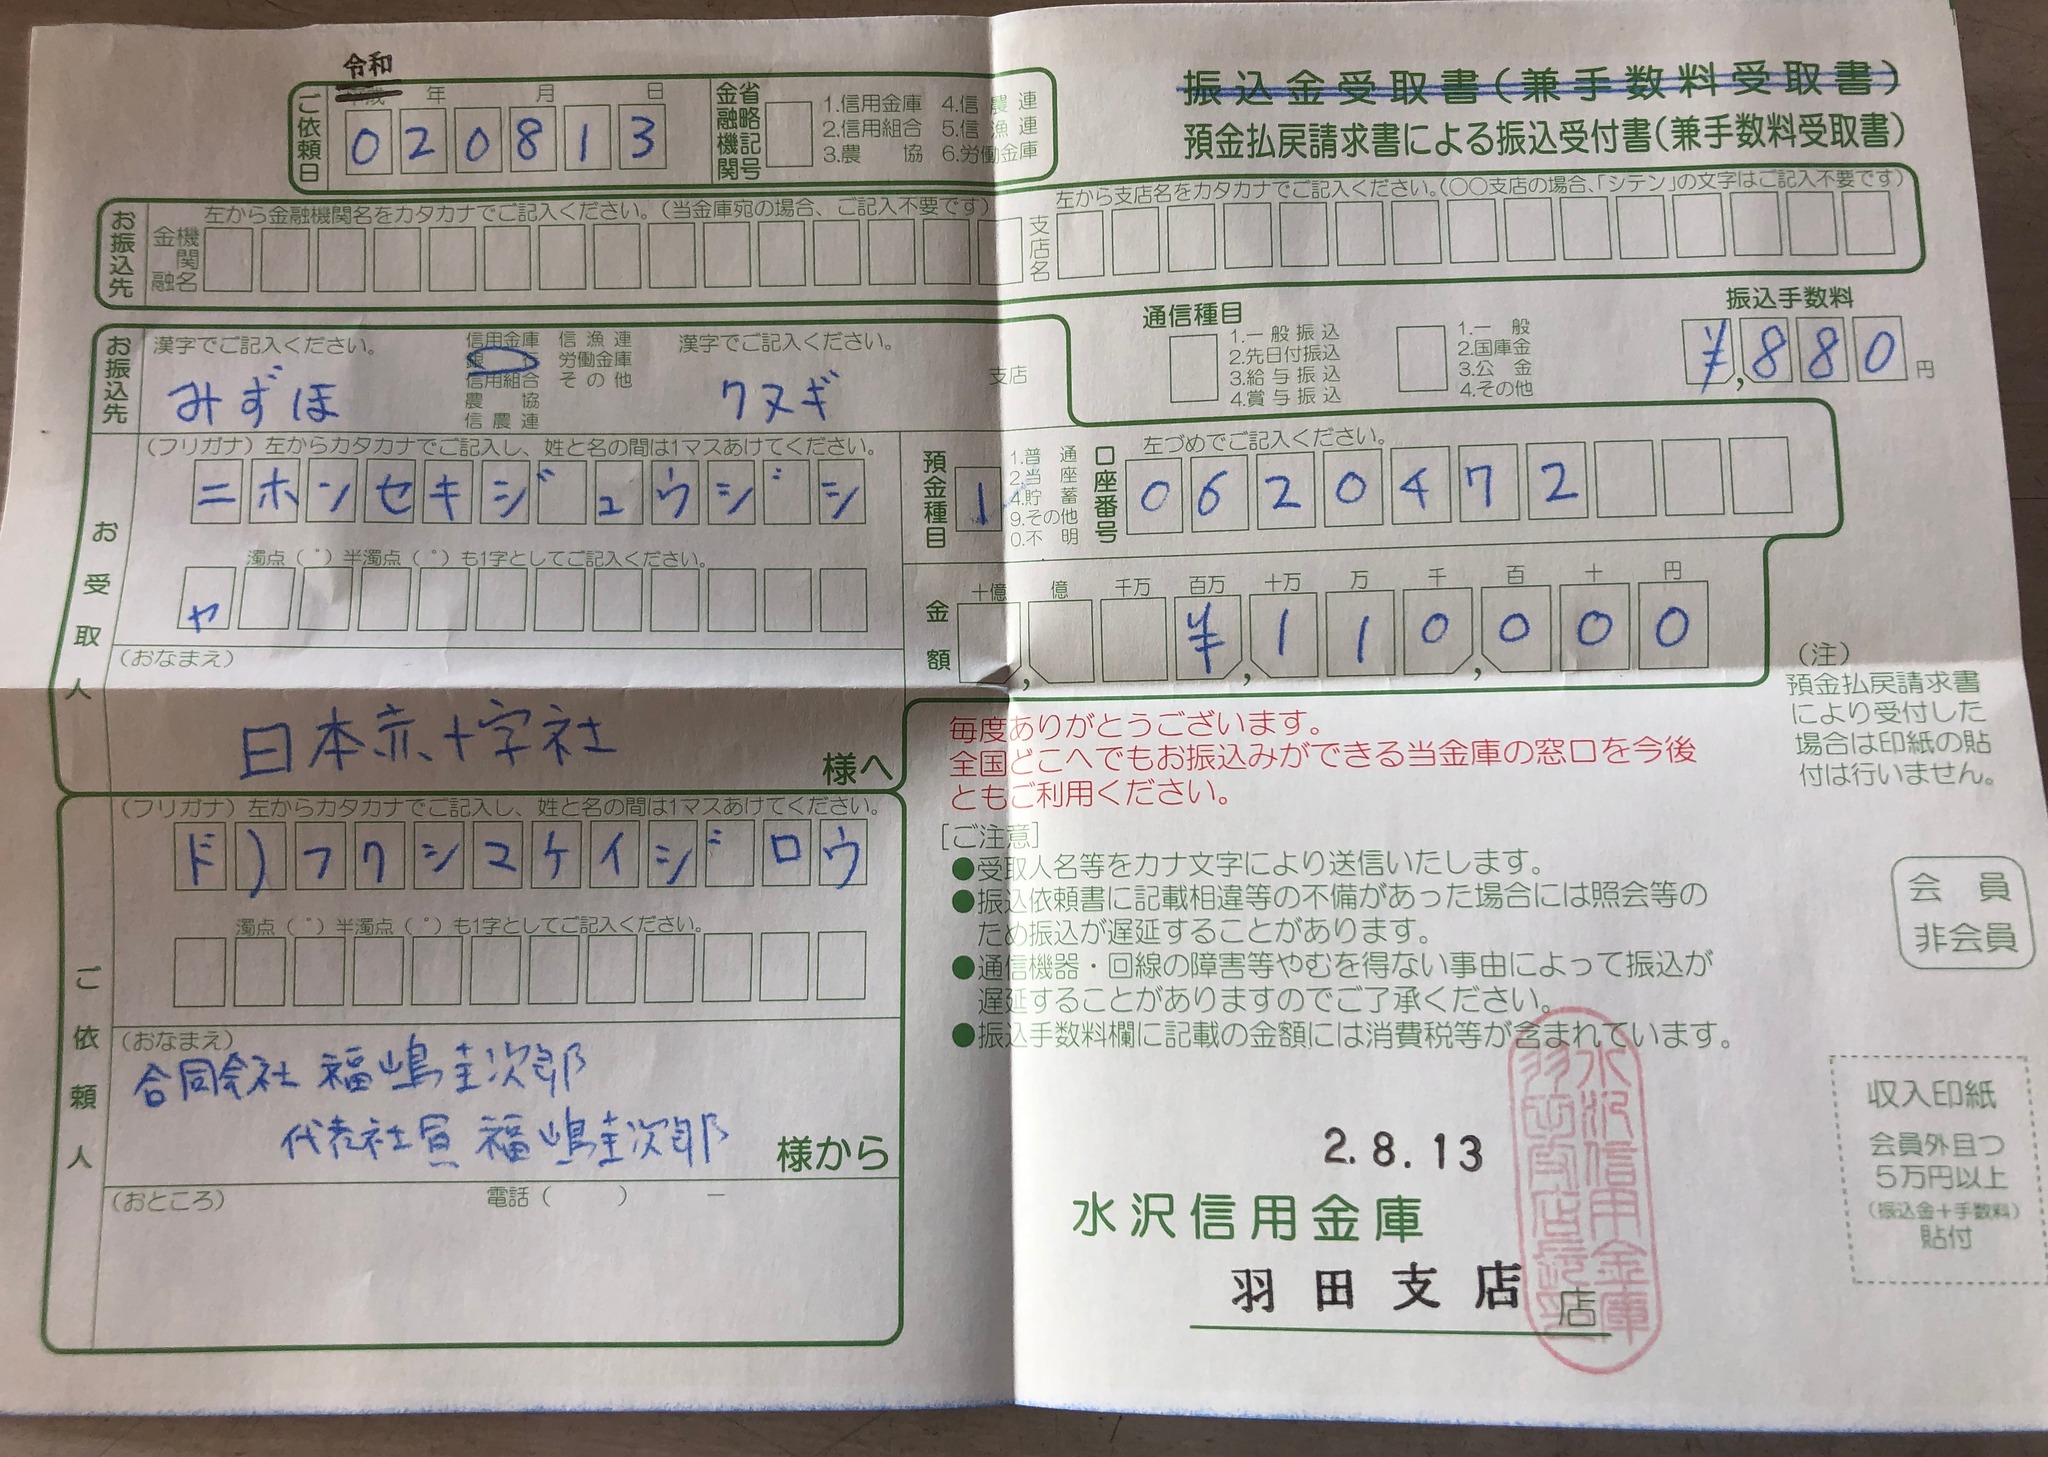 令和
平成 年 月 日
ご依頼日
020813
金融機関 省略記号
1.信用金庫 4.信農連
2.信用組合 5.信漁連
3.農協 6.労働金庫
振込金受取書(兼手数料受取書)
預金払戻請求書による振込受付書(兼手数料受取書)
お振込先
左から金融機関名をカタカナでご記入ください。(当金庫宛の場合、ご記入不要です)
金融機関名
左から支店名をカタカナでご記入ください。(〇〇支店の場合、「シテン」の文字はご記入不要です)
支店名
お振込先
漢字でご記入ください。
みずほ
信用金庫 信漁連
銀行 労働金庫
信用組合 その他
農協
信農連
漢字でご記入ください。
クヌギ
支店
通信種目
1.一般振込
2.先日付振込
3.給与振込
4.賞与振込
1.一般
2.国庫金
3.公金
4.その他
振込手数料
¥,880円
お受取人
(フリガナ)左からカタカナでご記入し、姓と名の間は1マスあけてください。
ニホンセキジュウジシ
濁点(゛)半濁点(゜)も1字としてご記入ください。
ャ
(おなまえ)
日本赤十字社
様へ
預金種目
1
1.普通
2.当座
4.貯蓄
9.その他
0.不明
口座番号
左づめでご記入ください。
0620472
金額
十億 億 千万 百万 十万 万 千 百 十 円
¥110000
毎度ありがとうございます。
全国どこへでもお振込みができる当金庫の窓口を今後
ともご利用ください。
(注)
預金払戻請求書
により受付した
場合は印紙の貼
付は行いません。
ご依頼人
(フリガナ)左からカタカナでご記入し、姓と名の間は1マスあけてください。
ド)フクシマケイジロウ
濁点(゛)半濁点(゜)も1字としてご記入ください。
(おなまえ)
合同会社 福嶋圭次郎
代表社員 福嶋圭次郎
様から
(おところ) 電話( ) ー
[ご注意]
●受取人名等をカナ文字により送信いたします。
●振込依頼書に記載相違等の不備があった場合には照会等の
ため振込が遅延することがあります。
●通信機器・回線の障害等やむを得ない事由によって振込が
遅延することがありますのでご了承ください。
●振込手数料欄に記載の金額には消費税等が含まれています。
会員
非会員
2.8.13
水沢信用金庫
羽田支店 店
収入印紙
会員外且つ
5万円以上
(振込金+手数料)
貼付